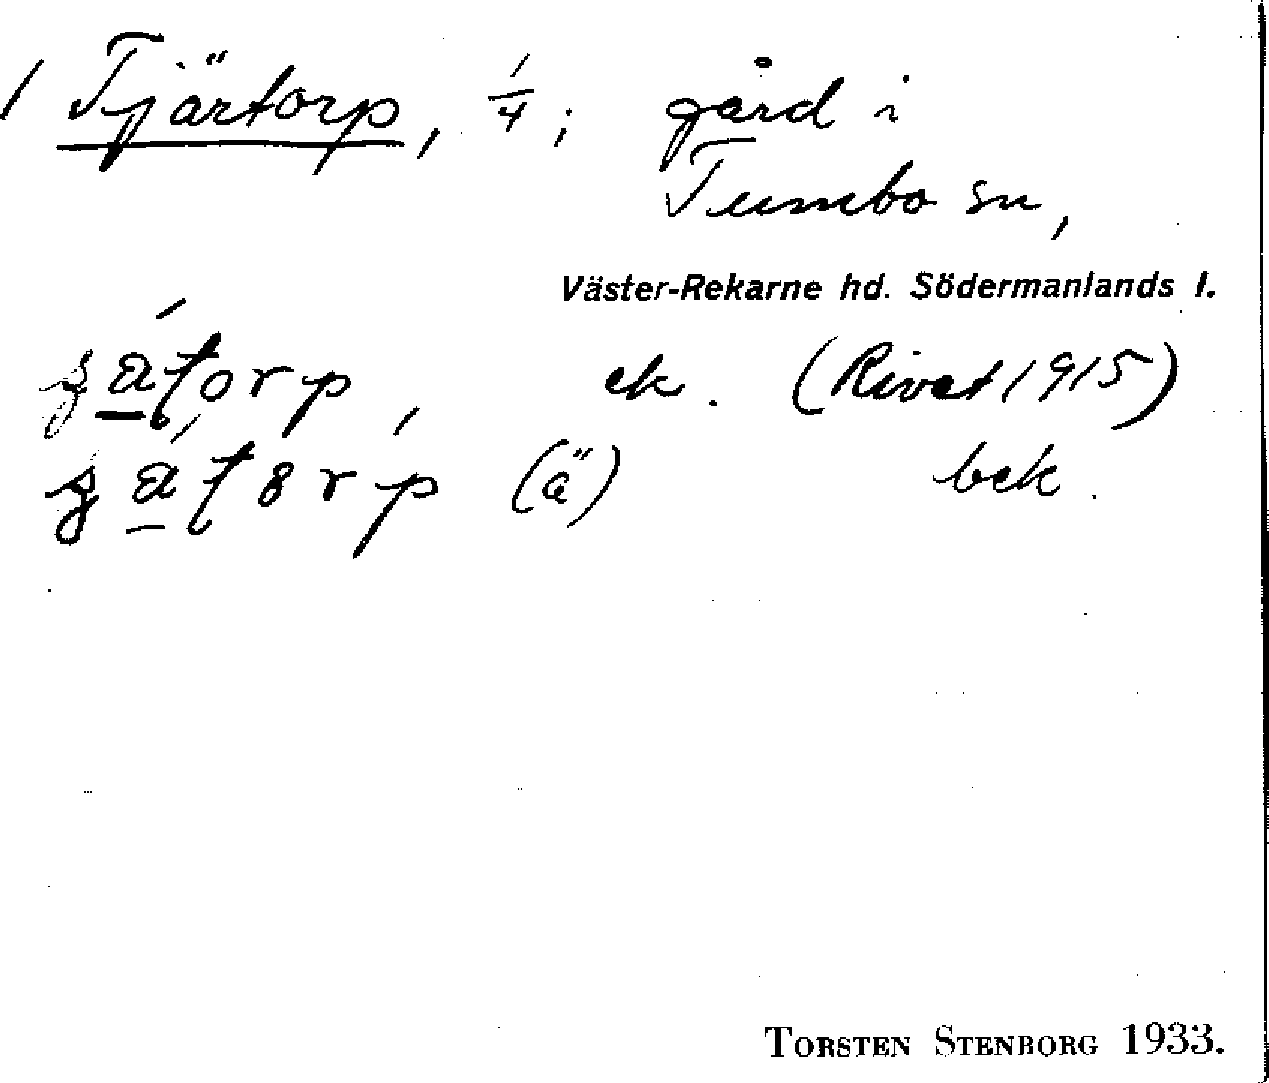 / Tjärtorp, 1/4; gård i
Tumbo sn,
Väster-Rekarne hd. Södermanlands l.
ek. (Rivet 1915)
(ä) bek.
TORSTEN STENBORG 1933.